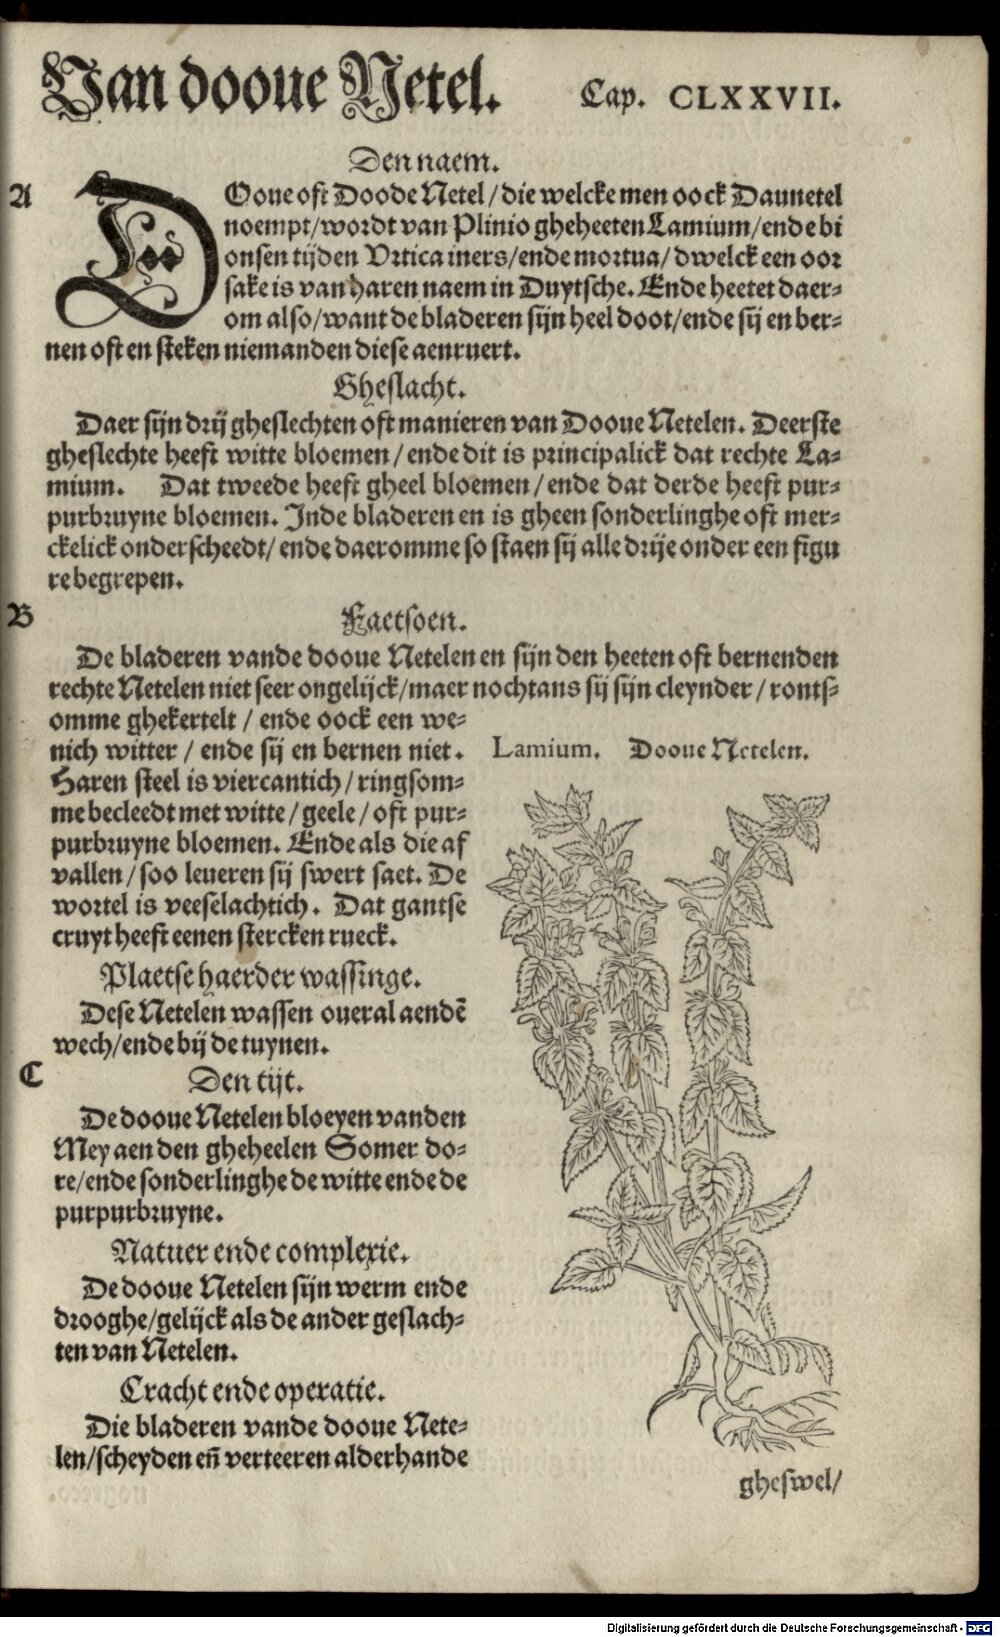 Van dooue Netel. Cap. CLXXVII.
Den naem.
A
DOoue oft Doode Netel/die welcke men oock Daunetel
noempt/wordt van Plinio gheheeten Lamium/ende bi
onsen tijden Vrtica iners/ende mortua/dwelck een oor
sake is van haren naem in Duytsche. Ende heetet daer-
om also/want de bladeren sijn heel doot/ende sij en ber-
nen oft en steken niemanden diese aenruert.
Gheslacht.
Daer sijn drij gheslechten oft manieren van Dooue Netelen. Deerste
gheslechte heeft witte bloemen/ende dit is principalick dat rechte La-
mium. Dat tweede heeft gheel bloemen/ende dat derde heeft pur-
purbruyne bloemen. Inde bladeren en is gheen sonderlinghe oft mer-
ckelick onderscheedt/ende daeromme so staen sij alle drije onder een figu
re begrepen.
B
Faetsoen.
De bladeren vande dooue Netelen en sijn den heeten oft bernenden
rechte Netelen niet seer ongelijck/maer nochtans sij sijn cleynder/ronts-
omme ghekertelt/ende oock een we-
nich witter/ende sij en bernen niet.
Haren steel is viercantich/ringsom-
me becleedt met witte/geele/oft pur-
purbruyne bloemen. Ende als die af
vallen/soo leueren sij swert saet. De
wortel is veeselachtich. Dat gantse
cruyt heeft eenen stercken rueck.
Plaetse haerder wassinge.
Dese Netelen wassen oueral aendē
wech/ende bij de tuynen.
C
Den tijt.
De dooue Netelen bloeyen vanden
Mey aen den gheheelen Somer do-
re/ende sonderlinghe de witte ende de
purpurbruyne.
Natuer ende complexie.
De dooue Netelen sijn werm ende
drooghe/gelijck als de ander geslach-
ten van Netelen.
Cracht ende operatie.
Die bladeren vande dooue Nete-
len/scheyden eñ verteeren alderhande
Lamium. Dooue Netelen.
gheswel/
Digitalisierung gefördert durch die Deutsche Forschungsgemeinschaft - DFG